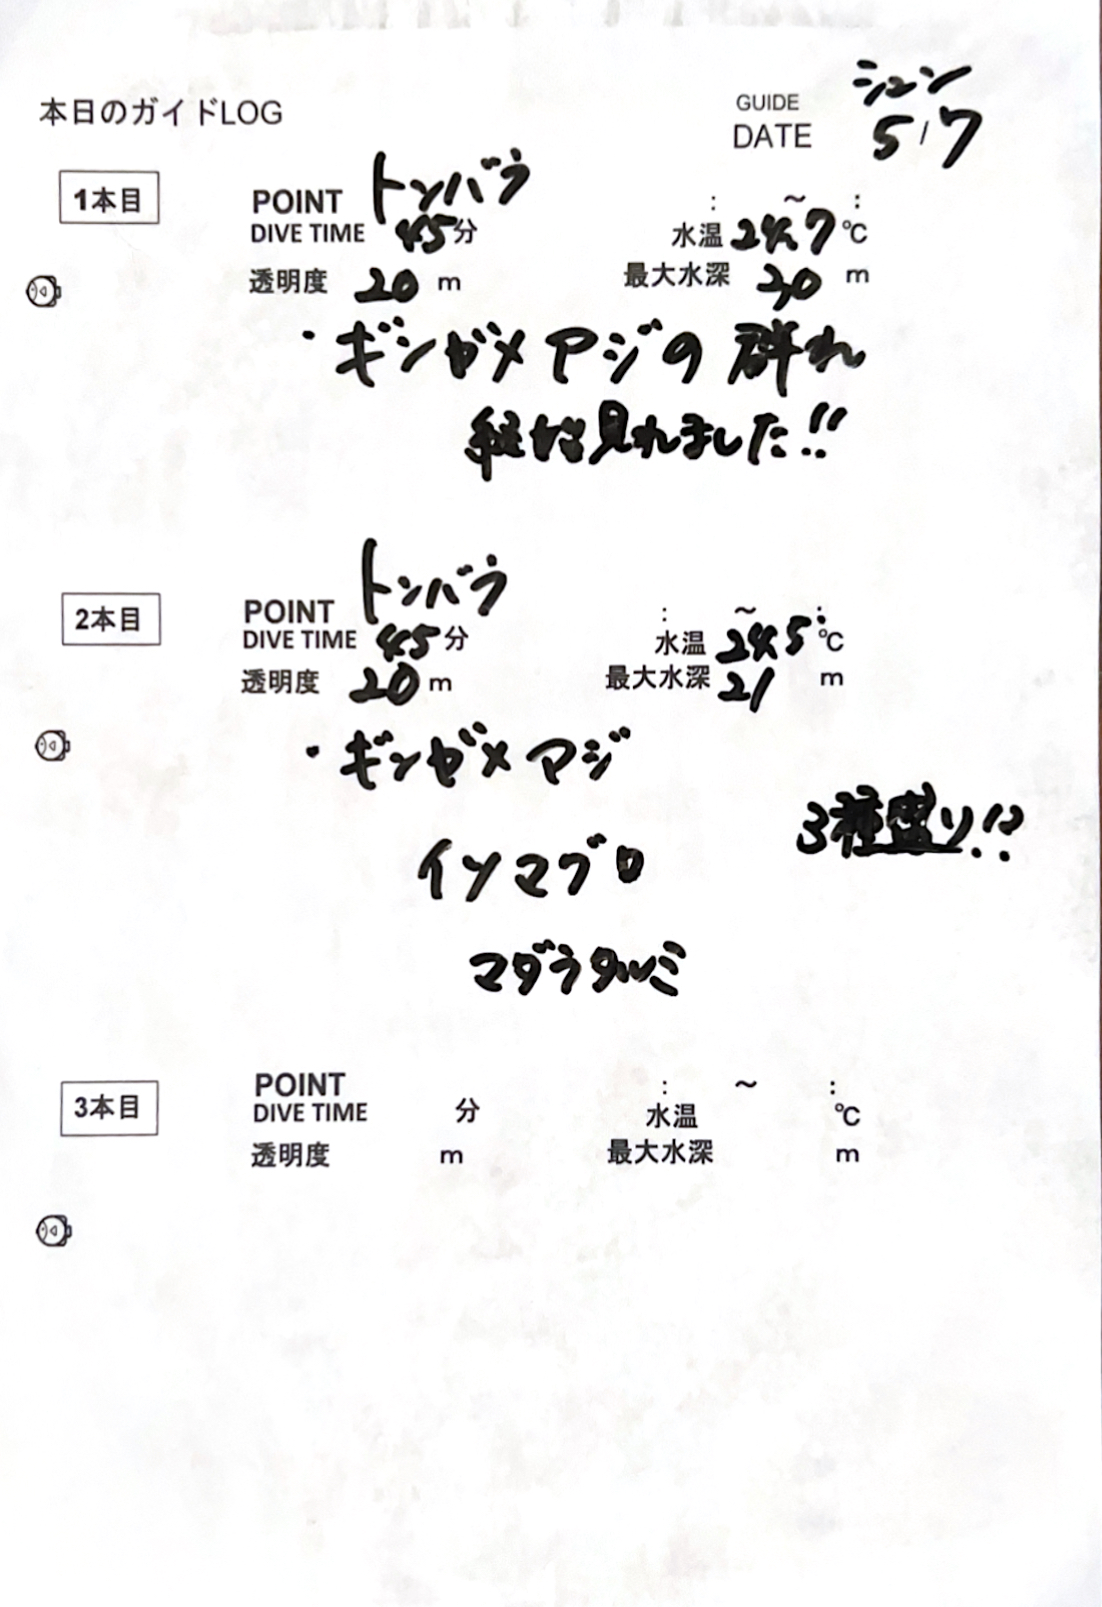 本日のガイドLOG
GUIDE シュン
DATE 5/7
1本目
POINT トンバラ : ～ :
DIVE TIME 45分 水温 24.7℃
透明度 20 m 最大水深 20 m
・ギンガメアジの群れ
見れました!!
2本目
POINT トンバラ : ～ :
DIVE TIME 45分 水温 24.5℃
透明度 20 m 最大水深 21 m
・ギンガメアジ
3種盛り!?
イソマグロ
マダラタルミ
3本目
POINT : ～ :
DIVE TIME 分 水温 ℃
透明度 m 最大水深 m